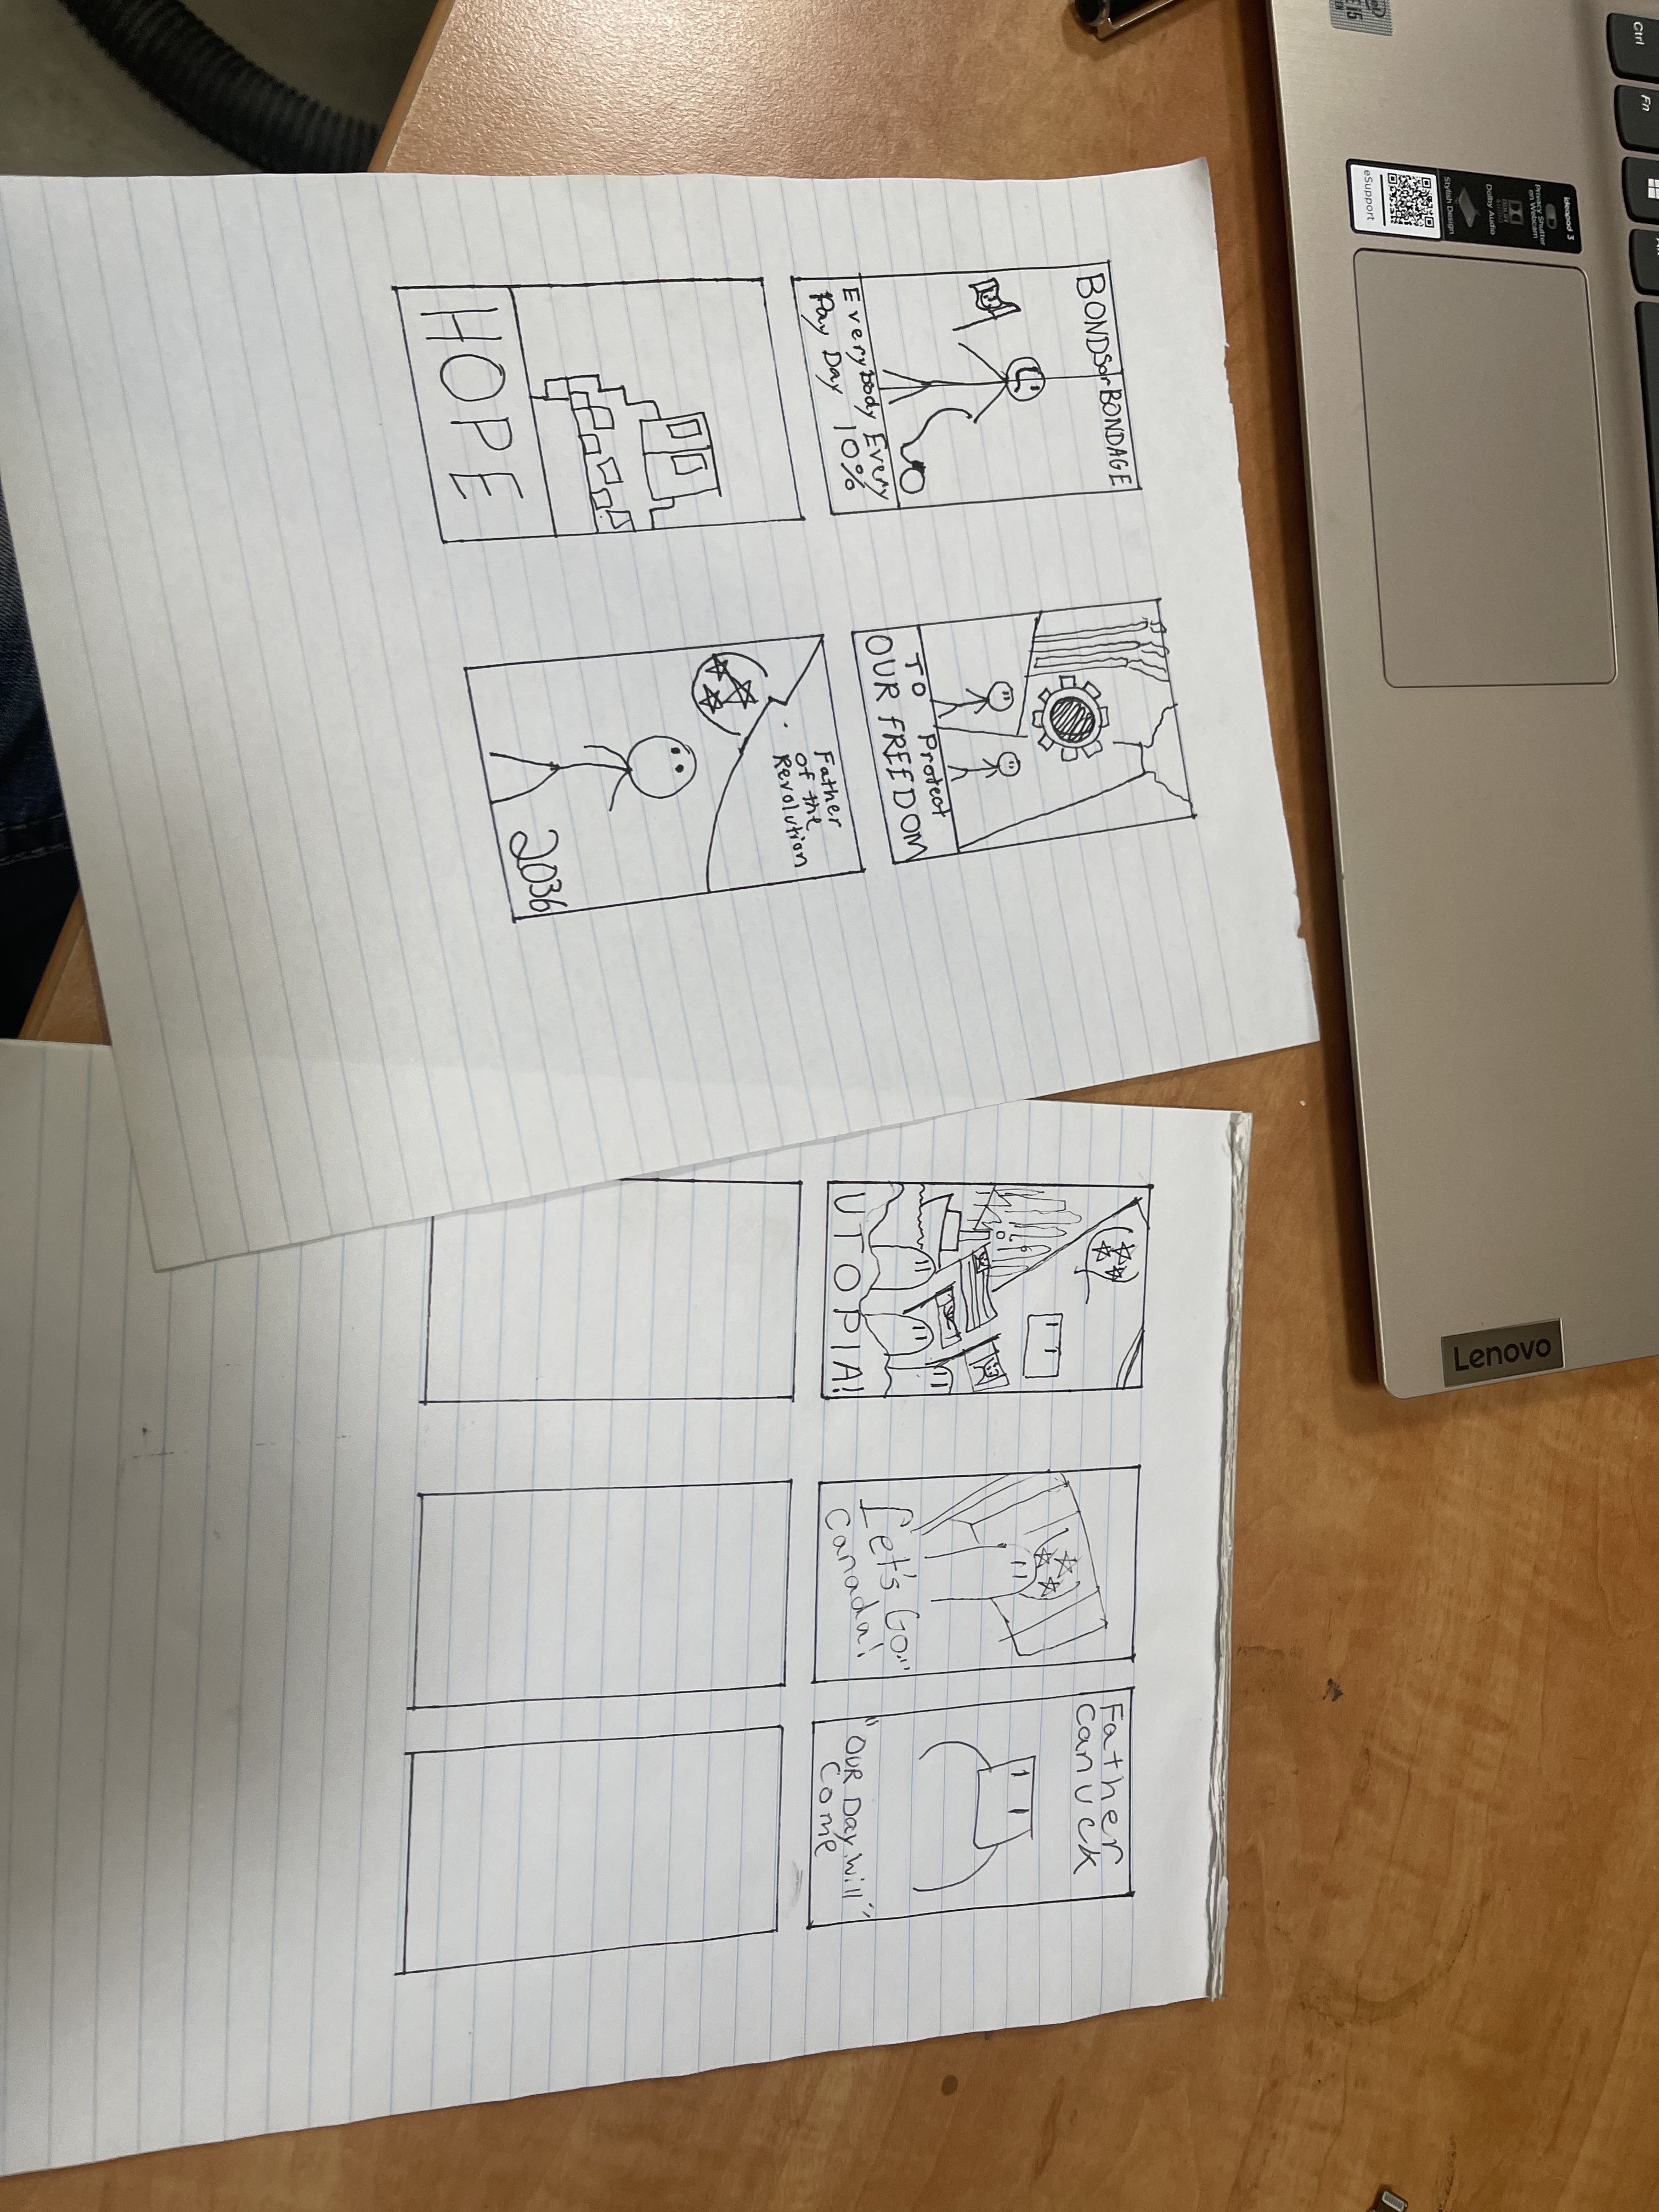 Ctrl
Fn
ideapad 3
Privacy Shutter
on Webcam
Dolby Audio
Stylish Design
eSupport
i5
Lenovo
BONDS or BONDAGE
Everybody Every
Pay Day 10%
TO Protect
OUR FREEDOM
HOPE
Father
of the
Revolution
2036
UTOPIA!
Let's Go...
Canada!
Father
Canuck
"OUR Day Will"
Come